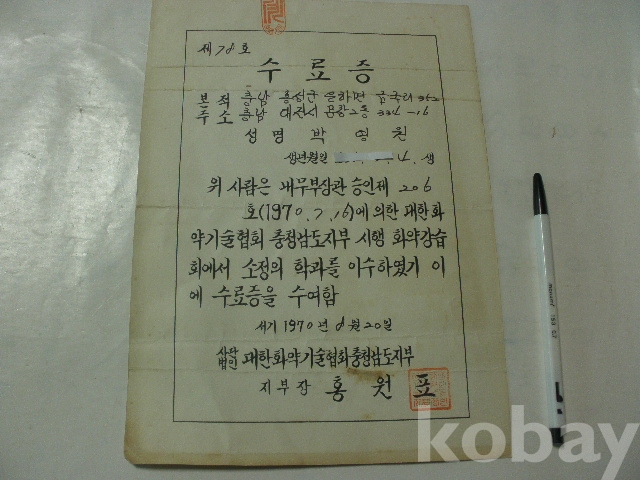 제 78 호
수 료 증
본 적 충남 홍성군 은하면 금국리 362
주 소 충남 대전시 문창2동 334-16
성 명 박 영 원
생년월일 4. 생
위 사람은 내무부장관 승인제 206
호(1970.7.16)에 의한 대한화
약기술협회 충청남도지부 시행 화약강습
회에서 소정의 학과를 이수하였기 이
에 수료증을 수여함
서기 1970년 8월 20일
사단법인 대한화약기술협회충청남도지부
지부장 홍 원 표
kobay